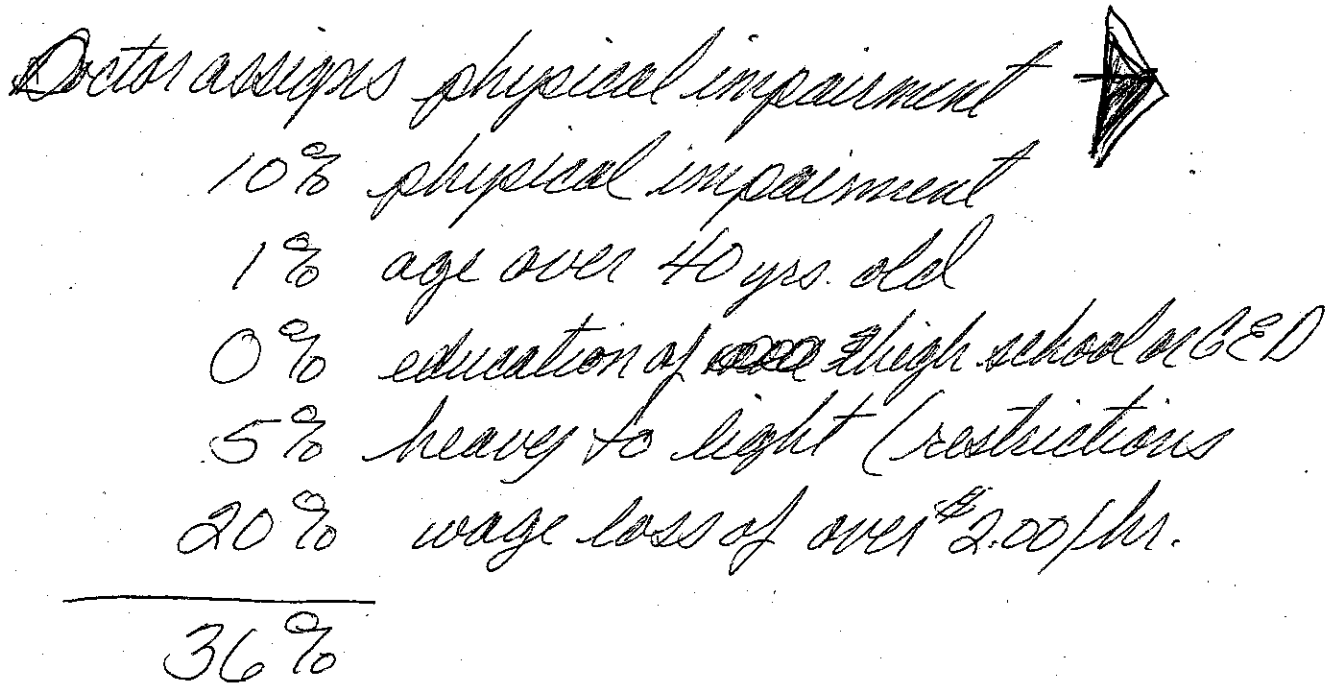 Doctor assigns physical impairment
10% physical impairment
1% age over 40 yrs. old
0% education of high school or GED
5% heavy to light (restrictions
20% wage loss of over $2.00/hr.
36%